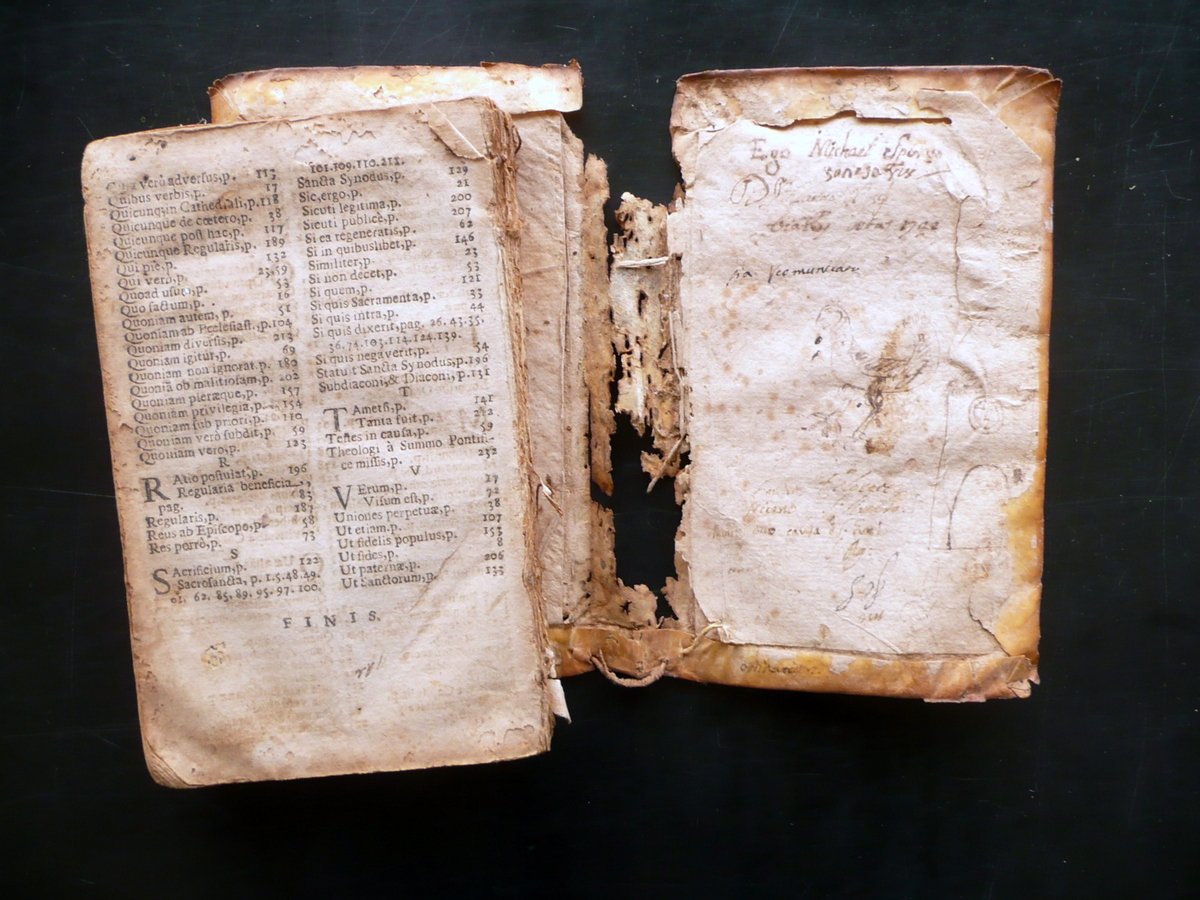 verò adversus,p. 113
Quibus verbis,p. 17
Quicunq;in Cathedrali,p.118
Quicunque de cœtero,p. 38
Quicunque post hac,p. 117
Quicunque Regularis,p. 189
Qui piè,p. 132
Qui verò,p. 23.59
Quoad usum,p. 53
Quo factum,p. 16
Quoniam autem,p. 51
Quoniam ab Ecclesiast.,p.104
Quoniam diversis,p. 213
Quoniam igitur,p. 69
Quoniam non ignorat p. 180
Quoniā ob malitiosam,p. 202
Quoniam pleræque,p. 157
Quoniam privilegia,p. 154
Quoniam sub priori,p. 110
Quoniam verò subdit,p. 59
Quoniam vero,p. 123
R
RAtio postulat,p. 196
Regularia beneficia
pag. 83
Regularis,p. 187
Reus ab Episcopo,p. 58
Res porrò,p. 73
S
SAcrificium,p. 122
Sacrosancta, p. 1.5.48.49.
62. 85. 89. 95. 97. 100.
101.109.110.211.
Sancta Synodus,p. 129
Sic,ergo,p. 21
Sicuti legitima,p. 200
Sicuti publicè,p. 207
Si ea regeneratis,p. 62
Si in quibuslibet,p. 146
Similiter,p. 23
Si non decet,p. 53
Si quem,p. 121
Si quis Sacramenta,p. 33
Si quis intra,p. 44
Si quis dixerit,pag. 26.43.35.
36.74.103.114.124.139.
Si quis negaverit,p. 54
Statuit Sancta Synodus,p.196
Subdiaconi,& Diaconi,p.131
T
TAmetsi,p. 141
Tanta fuit,p. 212
Testes in causa,p. 59
Theologi à Summo Pontifi-
ce missis,p. 232
V
VErum,p. 17
Visum est,p. 72
Uniones perpetuæ,p. 38
Ut etiam.p. 107
Ut fidelis populus,p. 153
Ut fides,p. 8
Ut paternæ,p. 206
Ut Sanctorum,p. 133
FINIS.
Ego Michael